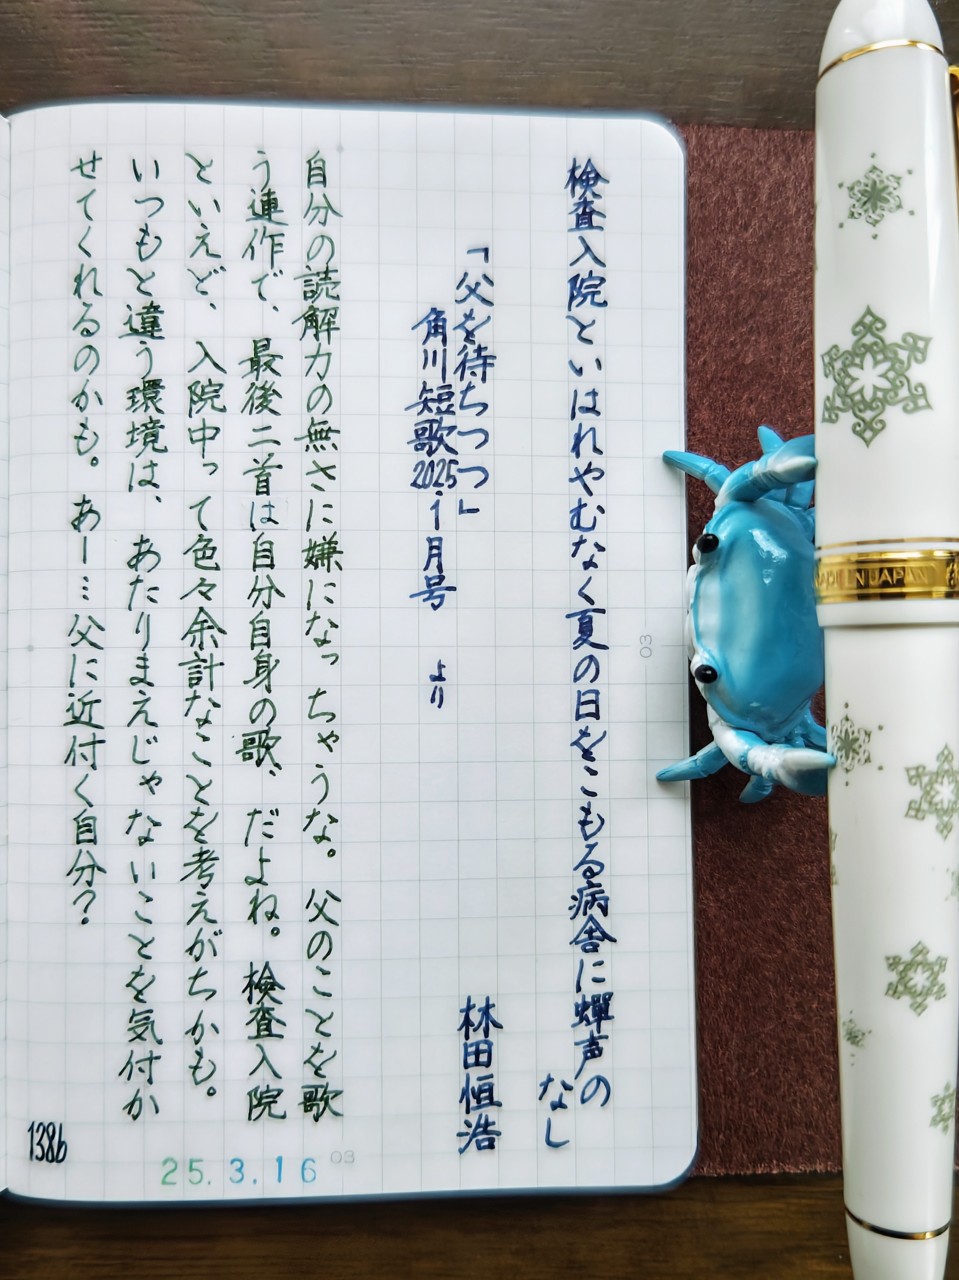 検査入院といはれやむなく夏の日をこもる病舎に蟬声の
なし
「父を待ちつつ」
林田恒浩
角川短歌2025.1月号 より
自分の読解力の無さに嫌になっちゃうな。父のことを歌
う連作で、最後二首は自分自身の歌、だよね。検査入院
といえど、入院中って色々余計なことを考えがちかも。
いつもと違う環境は、あたりまえじゃないことを気付か
せてくれるのかも。あー…父に近付く自分?
138b
25.3.16
03
03
MADE IN JAPAN